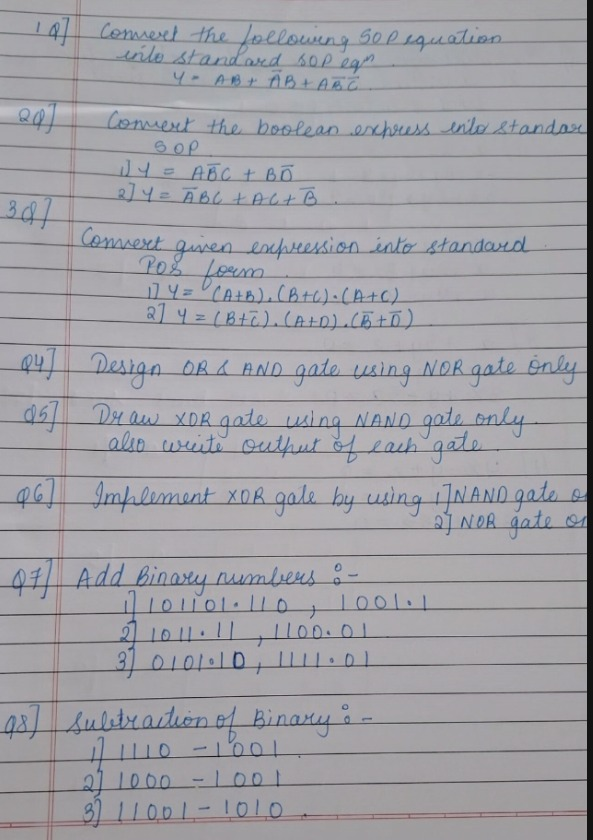 1Q] Convert the following SOP equation
into standard SOP eqn
Y = AB + A̅B + AB̅C̅.
2Q] Convert the boolean express into standar
SOP
1] Y = AB̅C + BD̅
2] Y = A̅BC + AC + B̅.
3Q]
Convert given expression into standard
POS form
1] Y = (A+B).(B+C).(A+C)
2] Y = (B+C̅).(A+D).(B̅+D̅)
Q4] Design OR & AND gate using NOR gate only
Q5] Draw XOR gate using NAND gate only.
also write output of each gate.
Q6] Implement XOR gate by using 1] NAND gate o
2] NOR gate on
Q7] Add Binary numbers :-
1] 101101.110 , 1001.1
2] 1011.11 , 1100.01
3] 0101.10 , 1111.01
Q8] Subtraction of Binary :-
1] 1110 - 1001
2] 1000 - 1001
3] 11001 - 1010